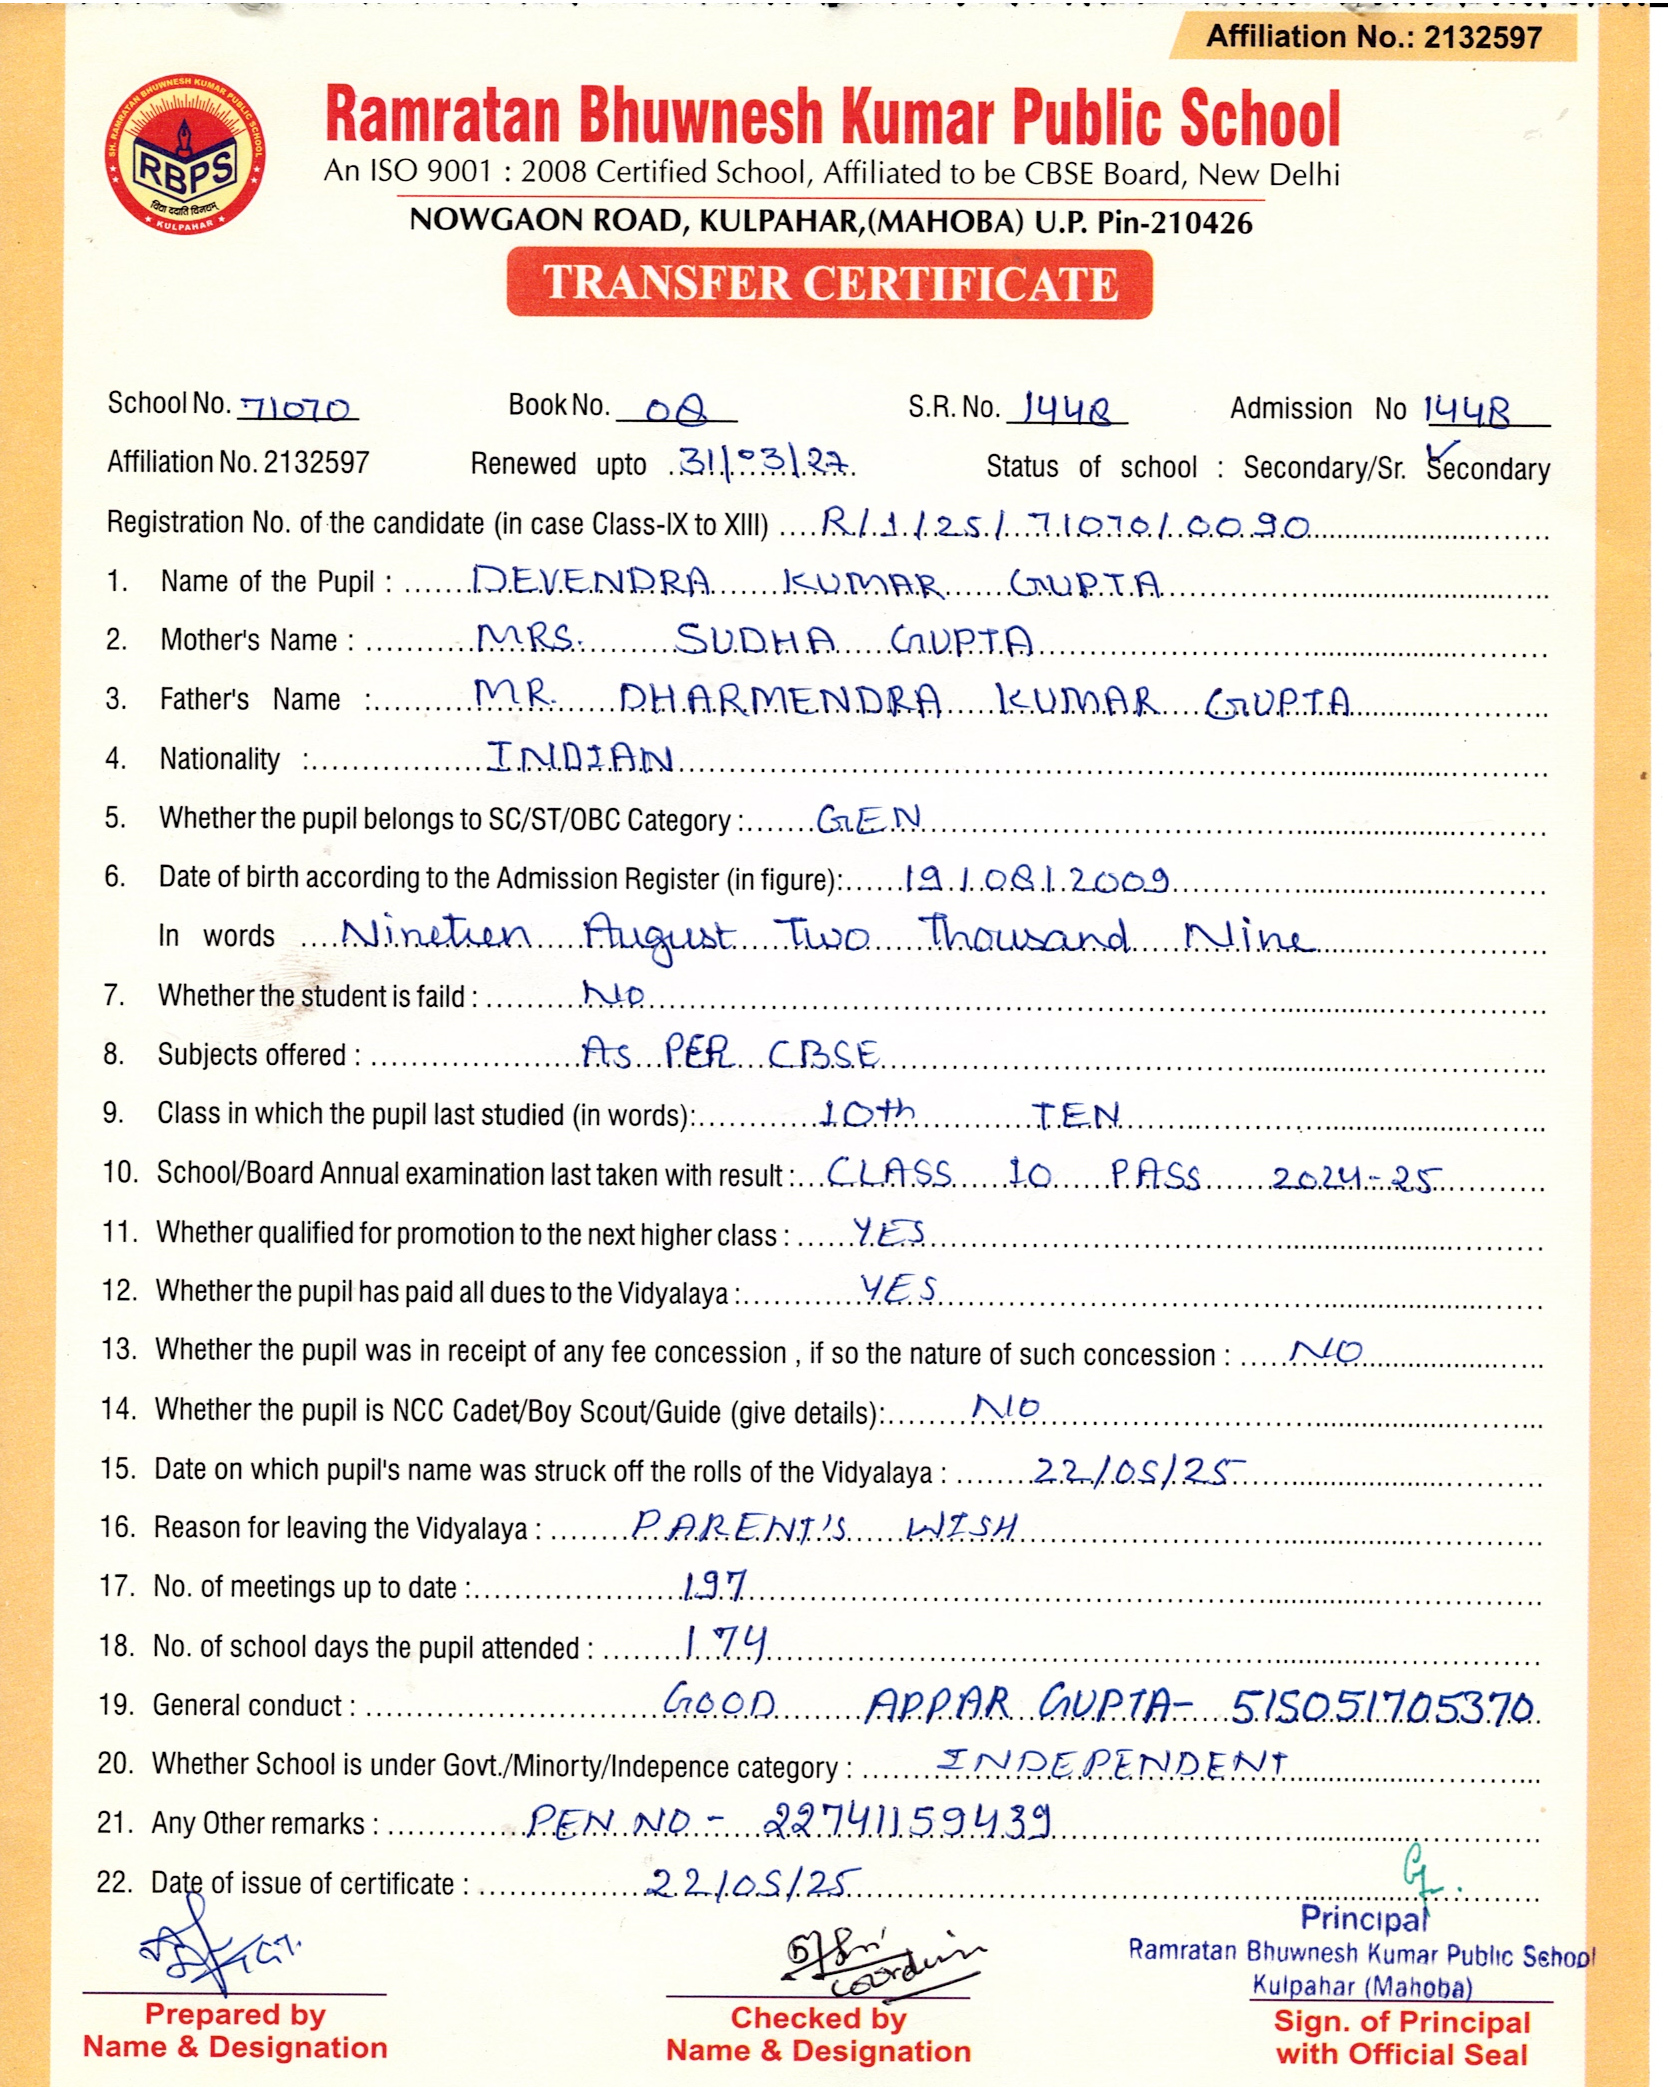 Affiliation No.: 2132597
SH. RAMRATAN BHUWNESH KUMAR PUBLIC SCHOOL
RBPS
विद्या ददाति विनयम्
KULPAHAR
Ramratan Bhuwnesh Kumar Public School
An ISO 9001 : 2008 Certified School, Affiliated to be CBSE Board, New Delhi
NOWGAON ROAD, KULPAHAR,(MAHOBA) U.P. Pin-210426
TRANSFER CERTIFICATE
School No. 71070 Book No. 08 S.R. No. 1448 Admission No 1448
Affiliation No. 2132597 Renewed upto 31/03/27 Status of school : Secondary/Sr. Secondary
Registration No. of the candidate (in case Class-IX to XIII) R/1/25/71070/0090
1. Name of the Pupil : DEVENDRA KUMAR GUPTA
2. Mother's Name : MRS. SUDHA GUPTA
3. Father's Name : MR. DHARMENDRA KUMAR GUPTA
4. Nationality : INDIAN
5. Whether the pupil belongs to SC/ST/OBC Category : GEN
6. Date of birth according to the Admission Register (in figure): 19/08/2009
In words Ninetien August Two Thousand Nine
7. Whether the student is faild : NO
8. Subjects offered : As PER CBSE
9. Class in which the pupil last studied (in words): 10th TEN
10. School/Board Annual examination last taken with result : CLASS 10 PASS 2024-25
11. Whether qualified for promotion to the next higher class : YES
12. Whether the pupil has paid all dues to the Vidyalaya : YES
13. Whether the pupil was in receipt of any fee concession , if so the nature of such concession : NO
14. Whether the pupil is NCC Cadet/Boy Scout/Guide (give details): NO
15. Date on which pupil's name was struck off the rolls of the Vidyalaya : 22/05/25
16. Reason for leaving the Vidyalaya : PARENT'S WISH
17. No. of meetings up to date : 197
18. No. of school days the pupil attended : 174
19. General conduct : GOOD APPAR GUPTA- 515051705370
20. Whether School is under Govt./Minorty/Indepence category : INDEPENDENT
21. Any Other remarks : PEN NO - 22741159439
22. Date of issue of certificate : 22/05/25
Principal
Ramratan Bhuwnesh Kumar Public School
Kulpahar (Mahoba)
Prepared by Checked by Sign. of Principal
Name & Designation Name & Designation with Official Seal